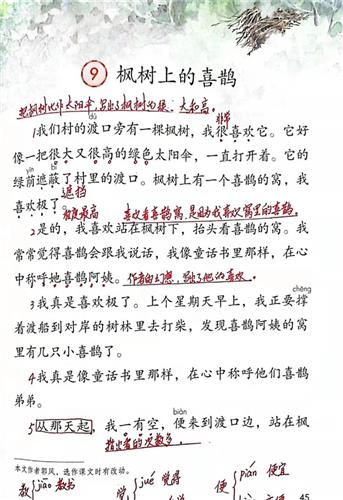 9 枫树上的喜鹊
把枫树比作太阳伞,写出了枫树的绿、大和高。
非常
dù
1我们村的渡口旁有一棵枫树,我很喜欢它。它好
像一把很大又很高的绿色太阳伞,一直打开着。它的
yīn
绿荫遮蔽了村里的渡口。枫树上有一个喜鹊的窝,我
遮挡
喜欢极了。
程度最高 喜欢看喜鹊窝,是因为我喜欢窝里的喜鹊。
2是的,我喜欢站在枫树下,抬头看喜鹊的窝。我
常常觉得喜鹊会跟我说话,我像童话书里那样,在心
中称呼她喜鹊阿姨。作者的幻想,写出了他的喜欢。
chēng
3我真是喜欢极了。上个星期天早上,我正要撑
着渡船到对岸的树林里去打柴,发现喜鹊阿姨的窝
里有几只小喜鹊了。
4我真是像童话书里那样,在心中称呼他们喜鹊
弟弟。
biàn
5从那天起,我一有空,便来到渡口边,站在枫
指出看的次数多。
本文作者郭风,选作课文时有改动。
教 jiāo 教书 学 jué 觉得 便 pián 便宜
45